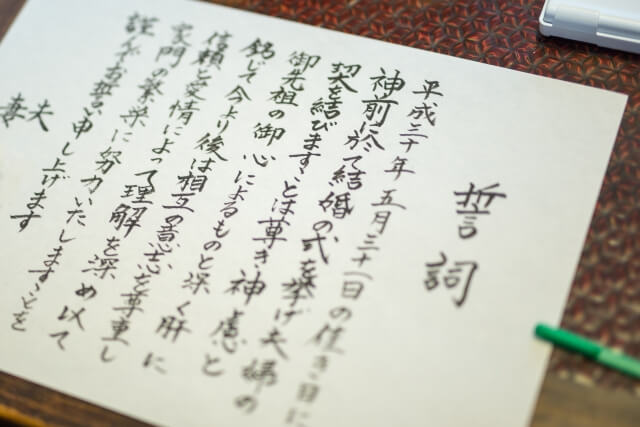 誓詞
平成三十年五月三十一日の佳き日に
神前に於て結婚の式を挙げ夫婦の
契を結びますことは尊き神慮と
御先祖の御心によるものと深く肝に
銘じて今より後は相互の意志を尊重し
信頼と愛情によって理解を深め以て
家門の繁栄に努力いたしますことを
謹んでお誓い申し上げます
夫
妻